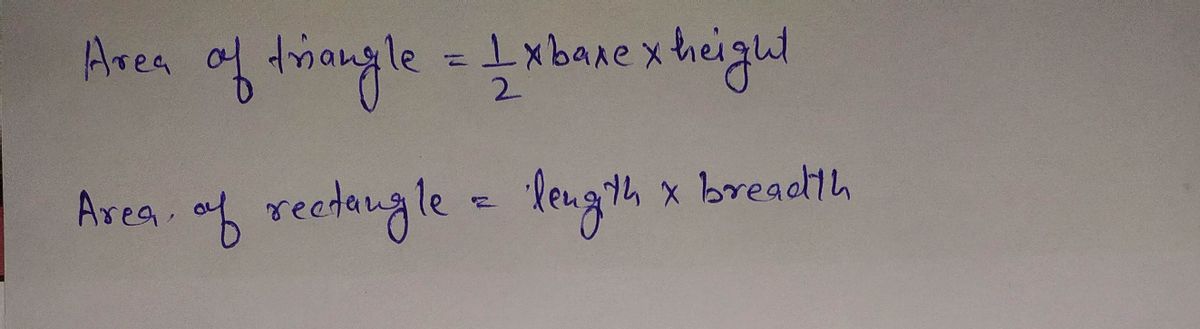 Area of triangle = 1/2 x base x height
Area of rectangle = length x breadth